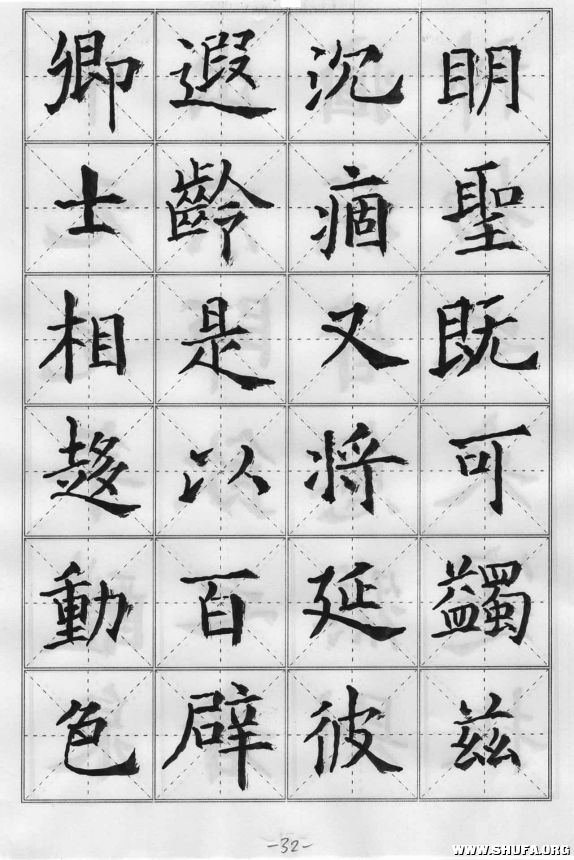 眀聖既可蠲兹
沉痼又将延彼
遐齡是以百辟
卿士相趍動色
-32-
WWW.SHUFA.ORG